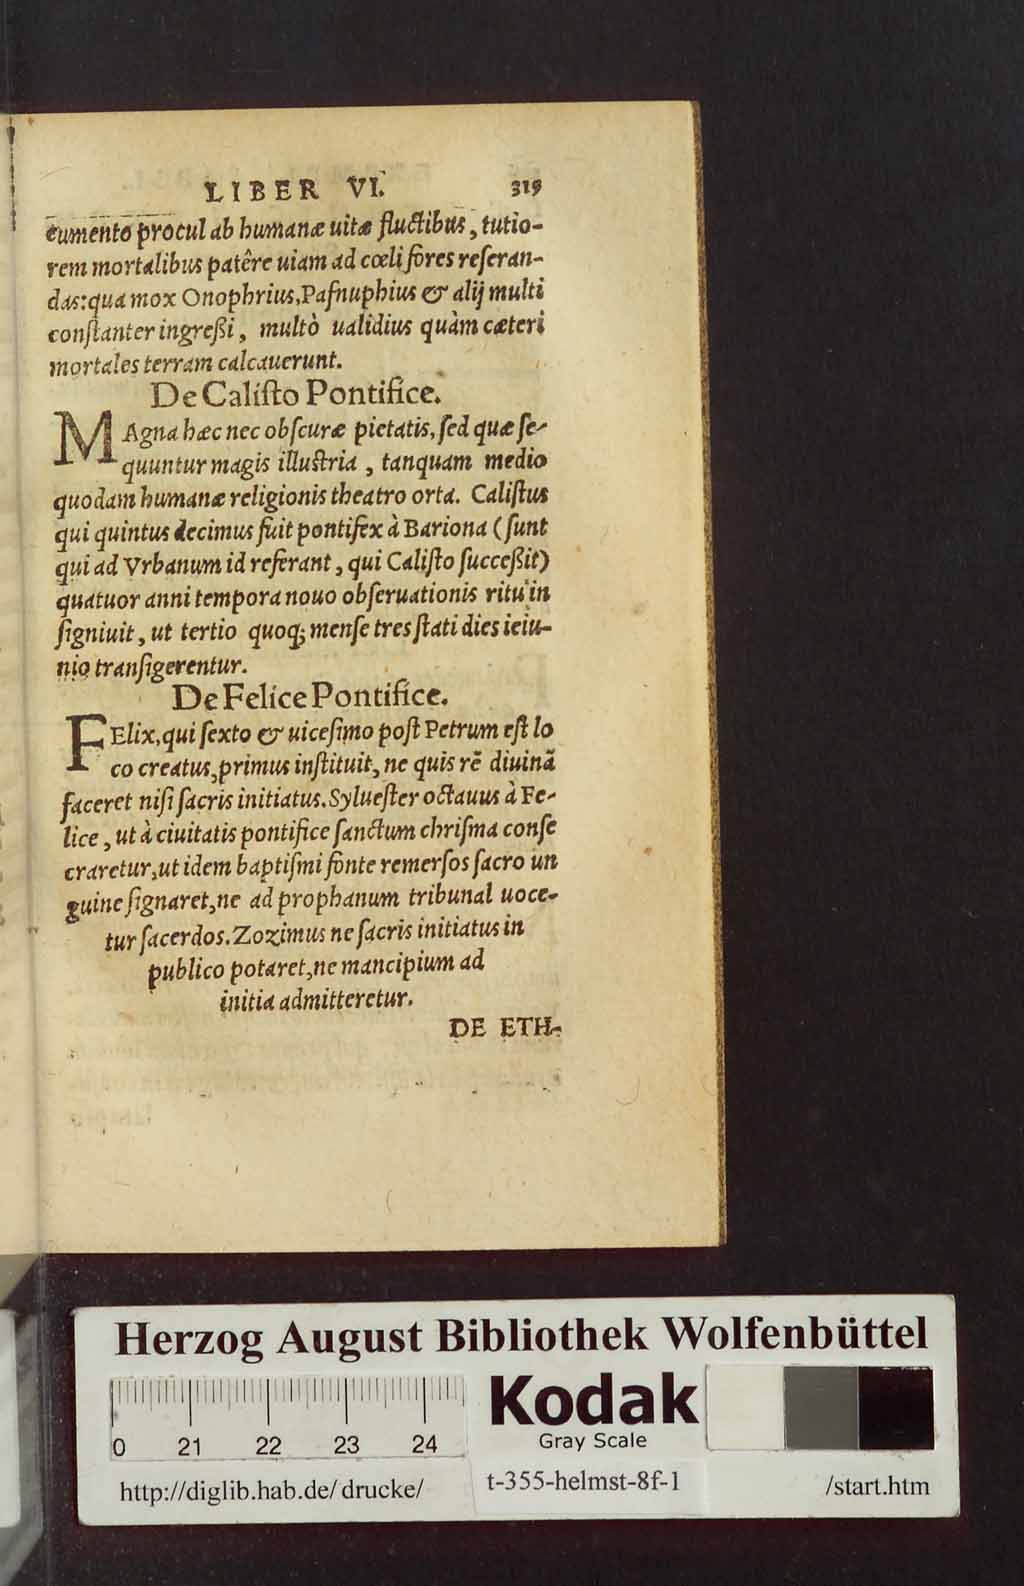 LIBER VI. 319
cumento procul ab humanæ uitæ fluctibus, tutio-
rem mortalibus patêre uiam ad cœli fores reseran-
das: qua mox Onophrius, Pafnuphius & alij multi
constanter ingreßi, multò ualidius quàm cæteri
mortales terram calcauerunt.
De Calisto Pontifice.
MAgna hæc nec obscuræ pietatis, sed quæ se-
quuntur magis illustria, tanquam medio
quodam humanæ religionis theatro orta. Calistus
qui quintus decimus fuit pontifex à Bariona (sunt
qui ad Vrbanum id referant, qui Calisto succeßit)
quatuor anni tempora nouo obseruationis ritu in
signiuit, ut tertio quoq; mense tres stati dies ieiu-
nio transigerentur.
De Felice Pontifice.
FElix, qui sexto & uicesimo post Petrum est lo
co creatus, primus instituit, ne quis rẽ diuinã
faceret nisi sacris initiatus. Syluester octauus à Fe-
lice, ut à ciuitatis pontifice sanctum chrisma conse
craretur, ut idem baptismi fonte remersos sacro un
guine signaret, ne ad prophanum tribunal uoce-
tur sacerdos. Zozimus ne sacris initiatus in
publico potaret, ne mancipium ad
initia admitteretur.
DE ETH-
Herzog August Bibliothek Wolfenbüttel
0 21 22 23 24
Kodak
Gray Scale
http://diglib.hab.de/drucke/ t-355-helmst-8f-1 /start.htm